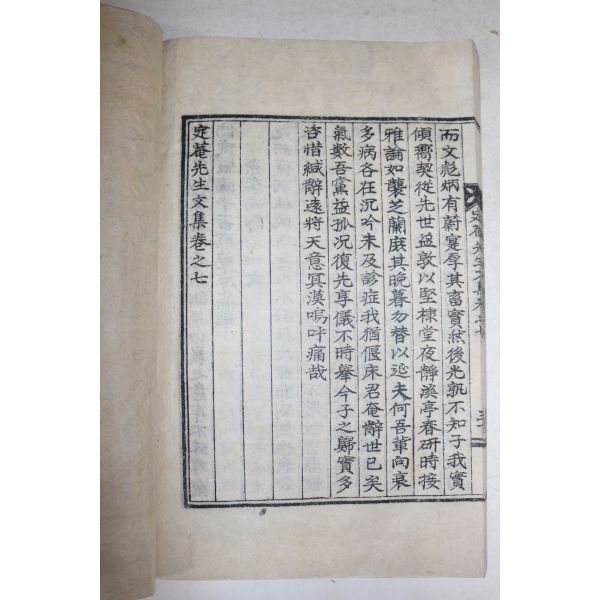 而文彪炳有蔚寔厚其畜實然後光孰不知子我實
傾嚮契從先世益敦以堅棣堂夜靜溪亭春研時接
雅論如襲芝蘭庶其晩暮勿替以延夫何吾輩向衰
多病各在沉吟未及診症我猶偃床君奄辭世已矣
氣數吾黨益孤况復先享儀不時舉今子之歸實多
咨惜緘辭遠將天意冥漠嗚呼痛哉
定菴先生文集卷之七
定菴先生文集卷之七